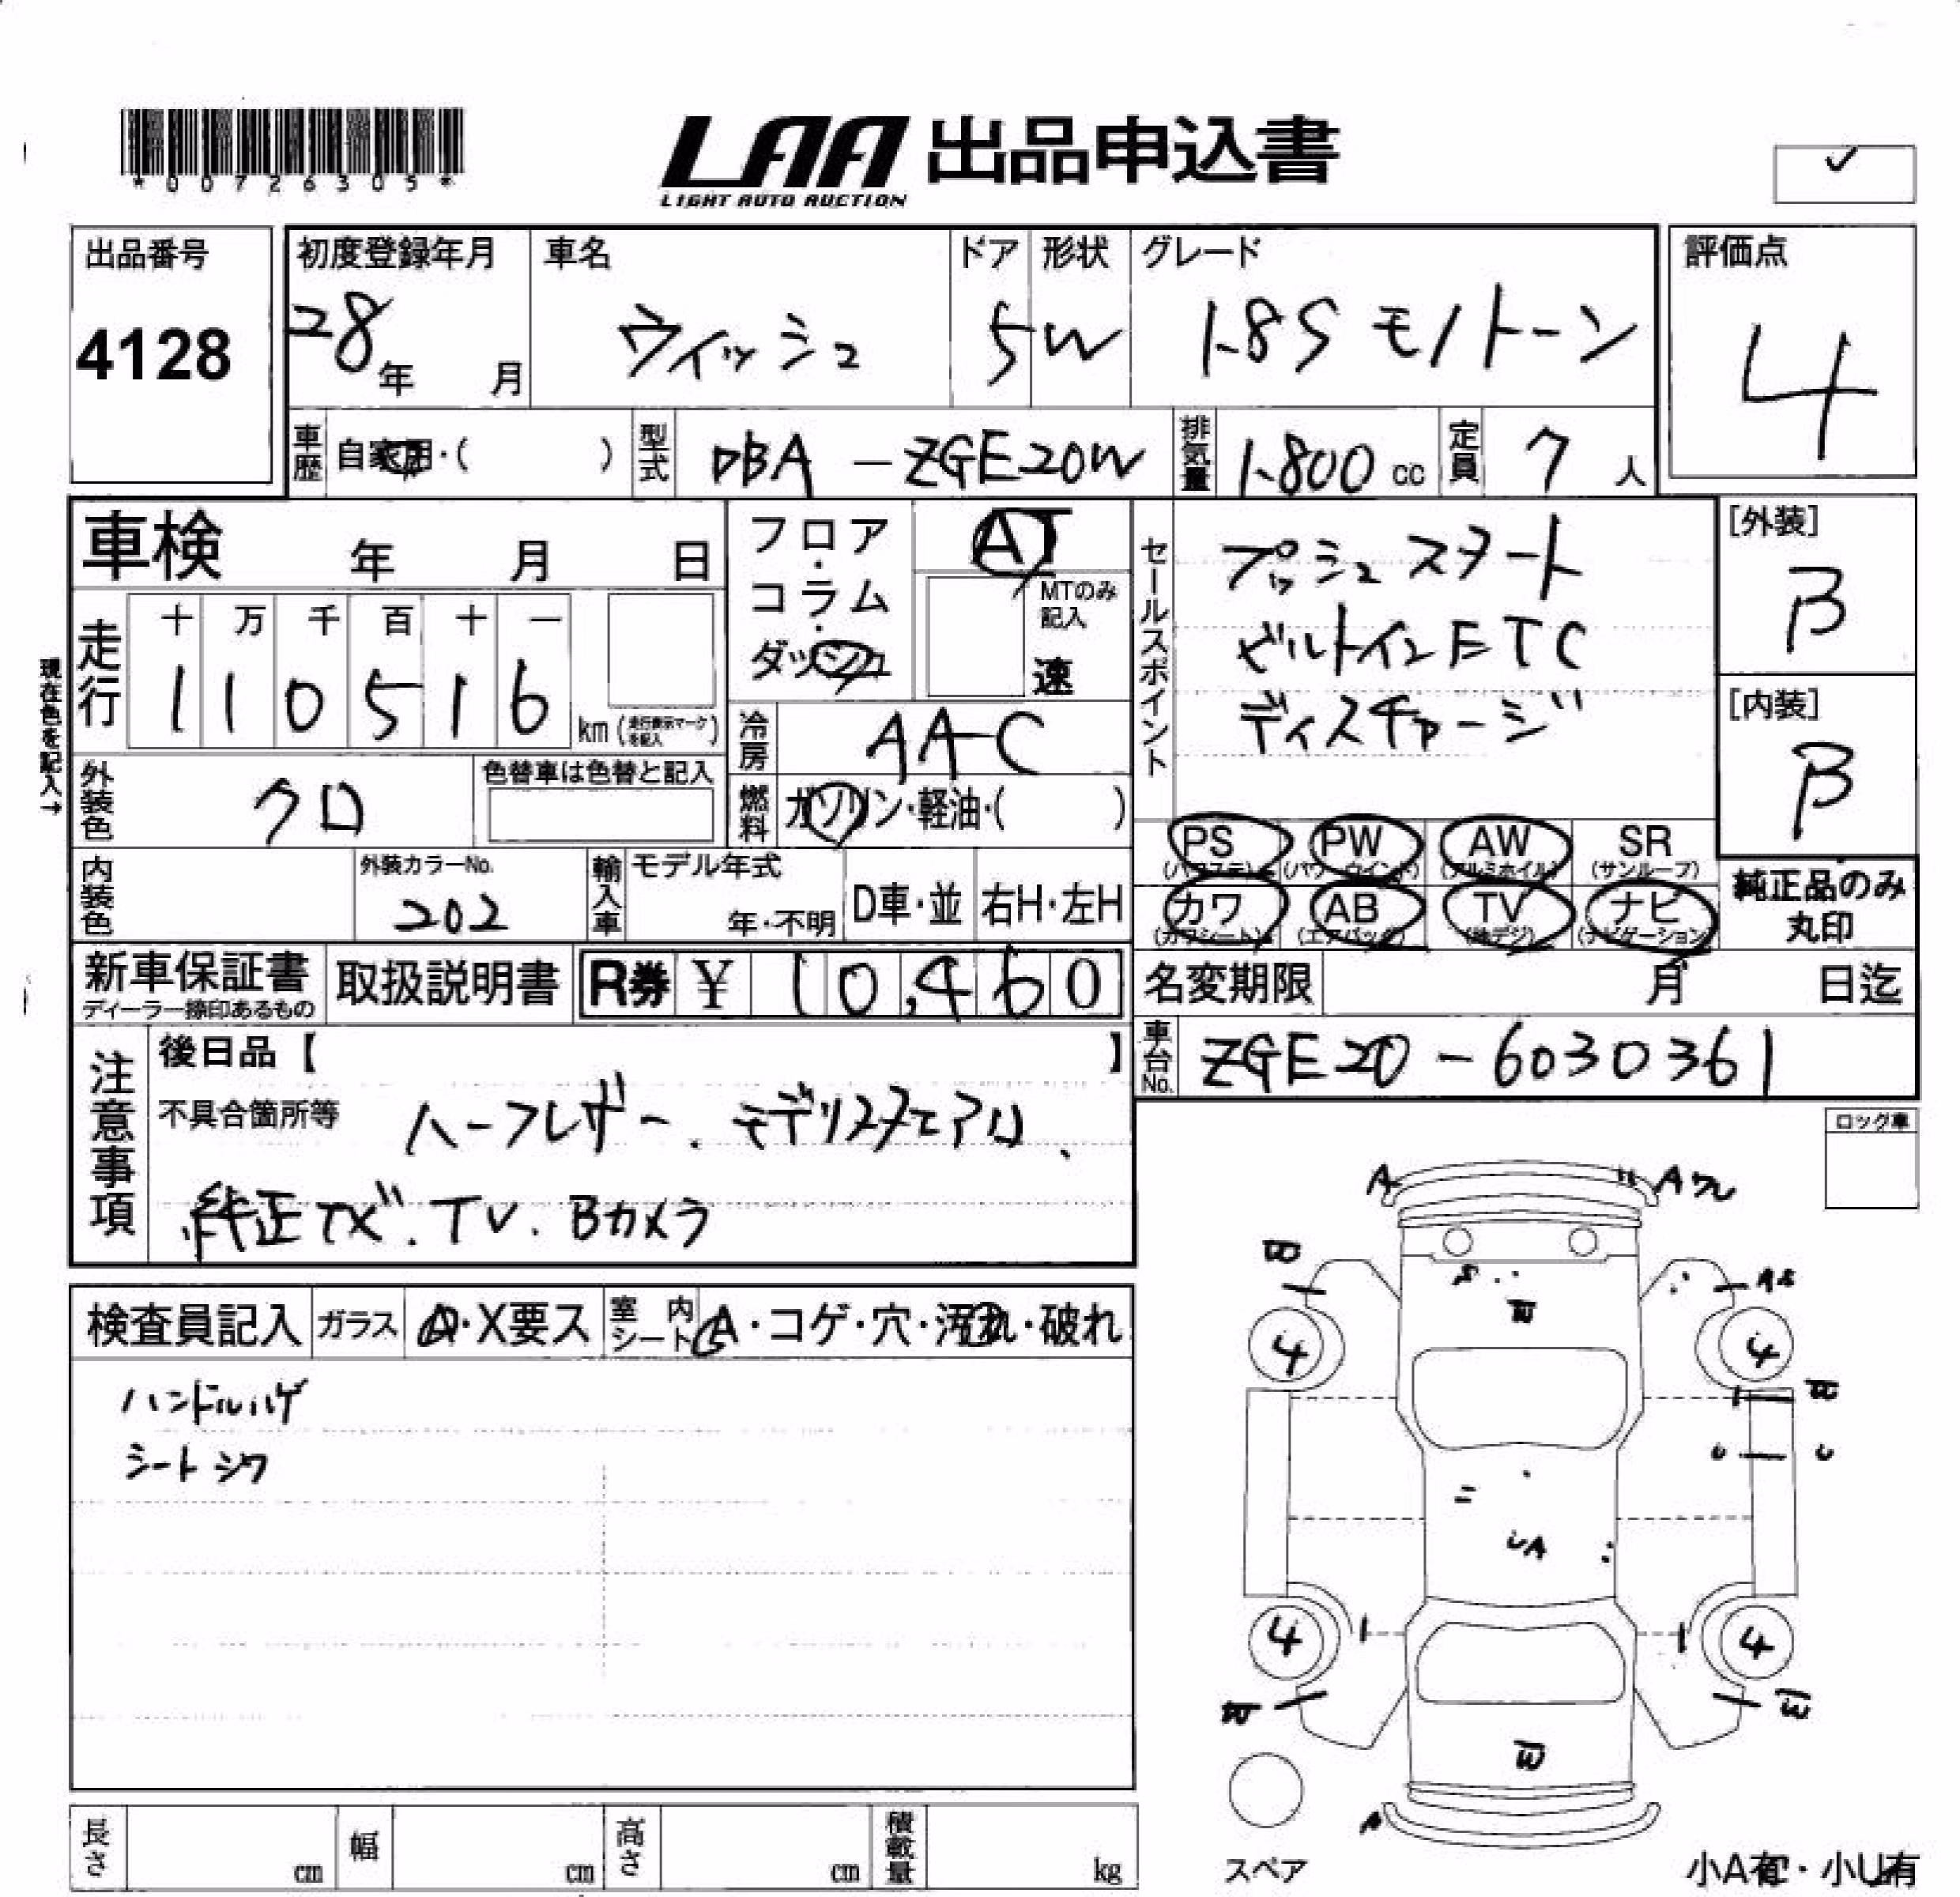 *00726305*
LAA 出品申込書
LIGHT AUTO AUCTION
✓
出品番号 4128
初度登録年月 28年 月
車名 ウィッシュ
ドア 5
形状 W
グレード 1.8S モノトーン
評価点 4
車歴 自家用・( )
型式 DBA-ZGE20W
排気量 1.800 cc
定員 7人
車検 年 月 日
フロア・コラム・ダッシュ
AT
MTのみ記入
速
セールスポイント
プッシュスタート
ビルトインETC
ディスチャージ
[外装] B
[内装] B
現在色を記入→
走行 十 万 千 百 十 一
110516 km (走行表示マークを記入)
冷房 AAC
外装色 クロ
色替車は色替と記入
燃料 ガソリン・軽油・( )
PS (パワステ) PW (パワーウインド) AW (アルミホイル) SR (サンルーフ)
カワ (カワシート) AB (エアバック) TV (地デジ) ナビ (ナビゲーション)
純正品のみ丸印
内装色
外装カラーNo. 202
輸入車 モデル年式 年・不明
D車・並 右H・左H
新車保証書
ディーラー捺印あるもの
取扱説明書
R券 ¥ 10,460
名変期限 月 日迄
車台No. ZGE20-6030361
注意事項
後日品【 】
不具合箇所等 ハーフレザー、モデリスタエアロ、
純正ナビ.TV.Bカメラ
ロック車
検査員記入 ガラス A・X要ス 室内シート A・コゲ・穴・汚れ・破れ
ハンドルハゲ
シートシワ
A A ワレ
4 4
UA
4 4
スペア
長さ cm 幅 cm 高さ cm 積載量 kg
小A有・小U有